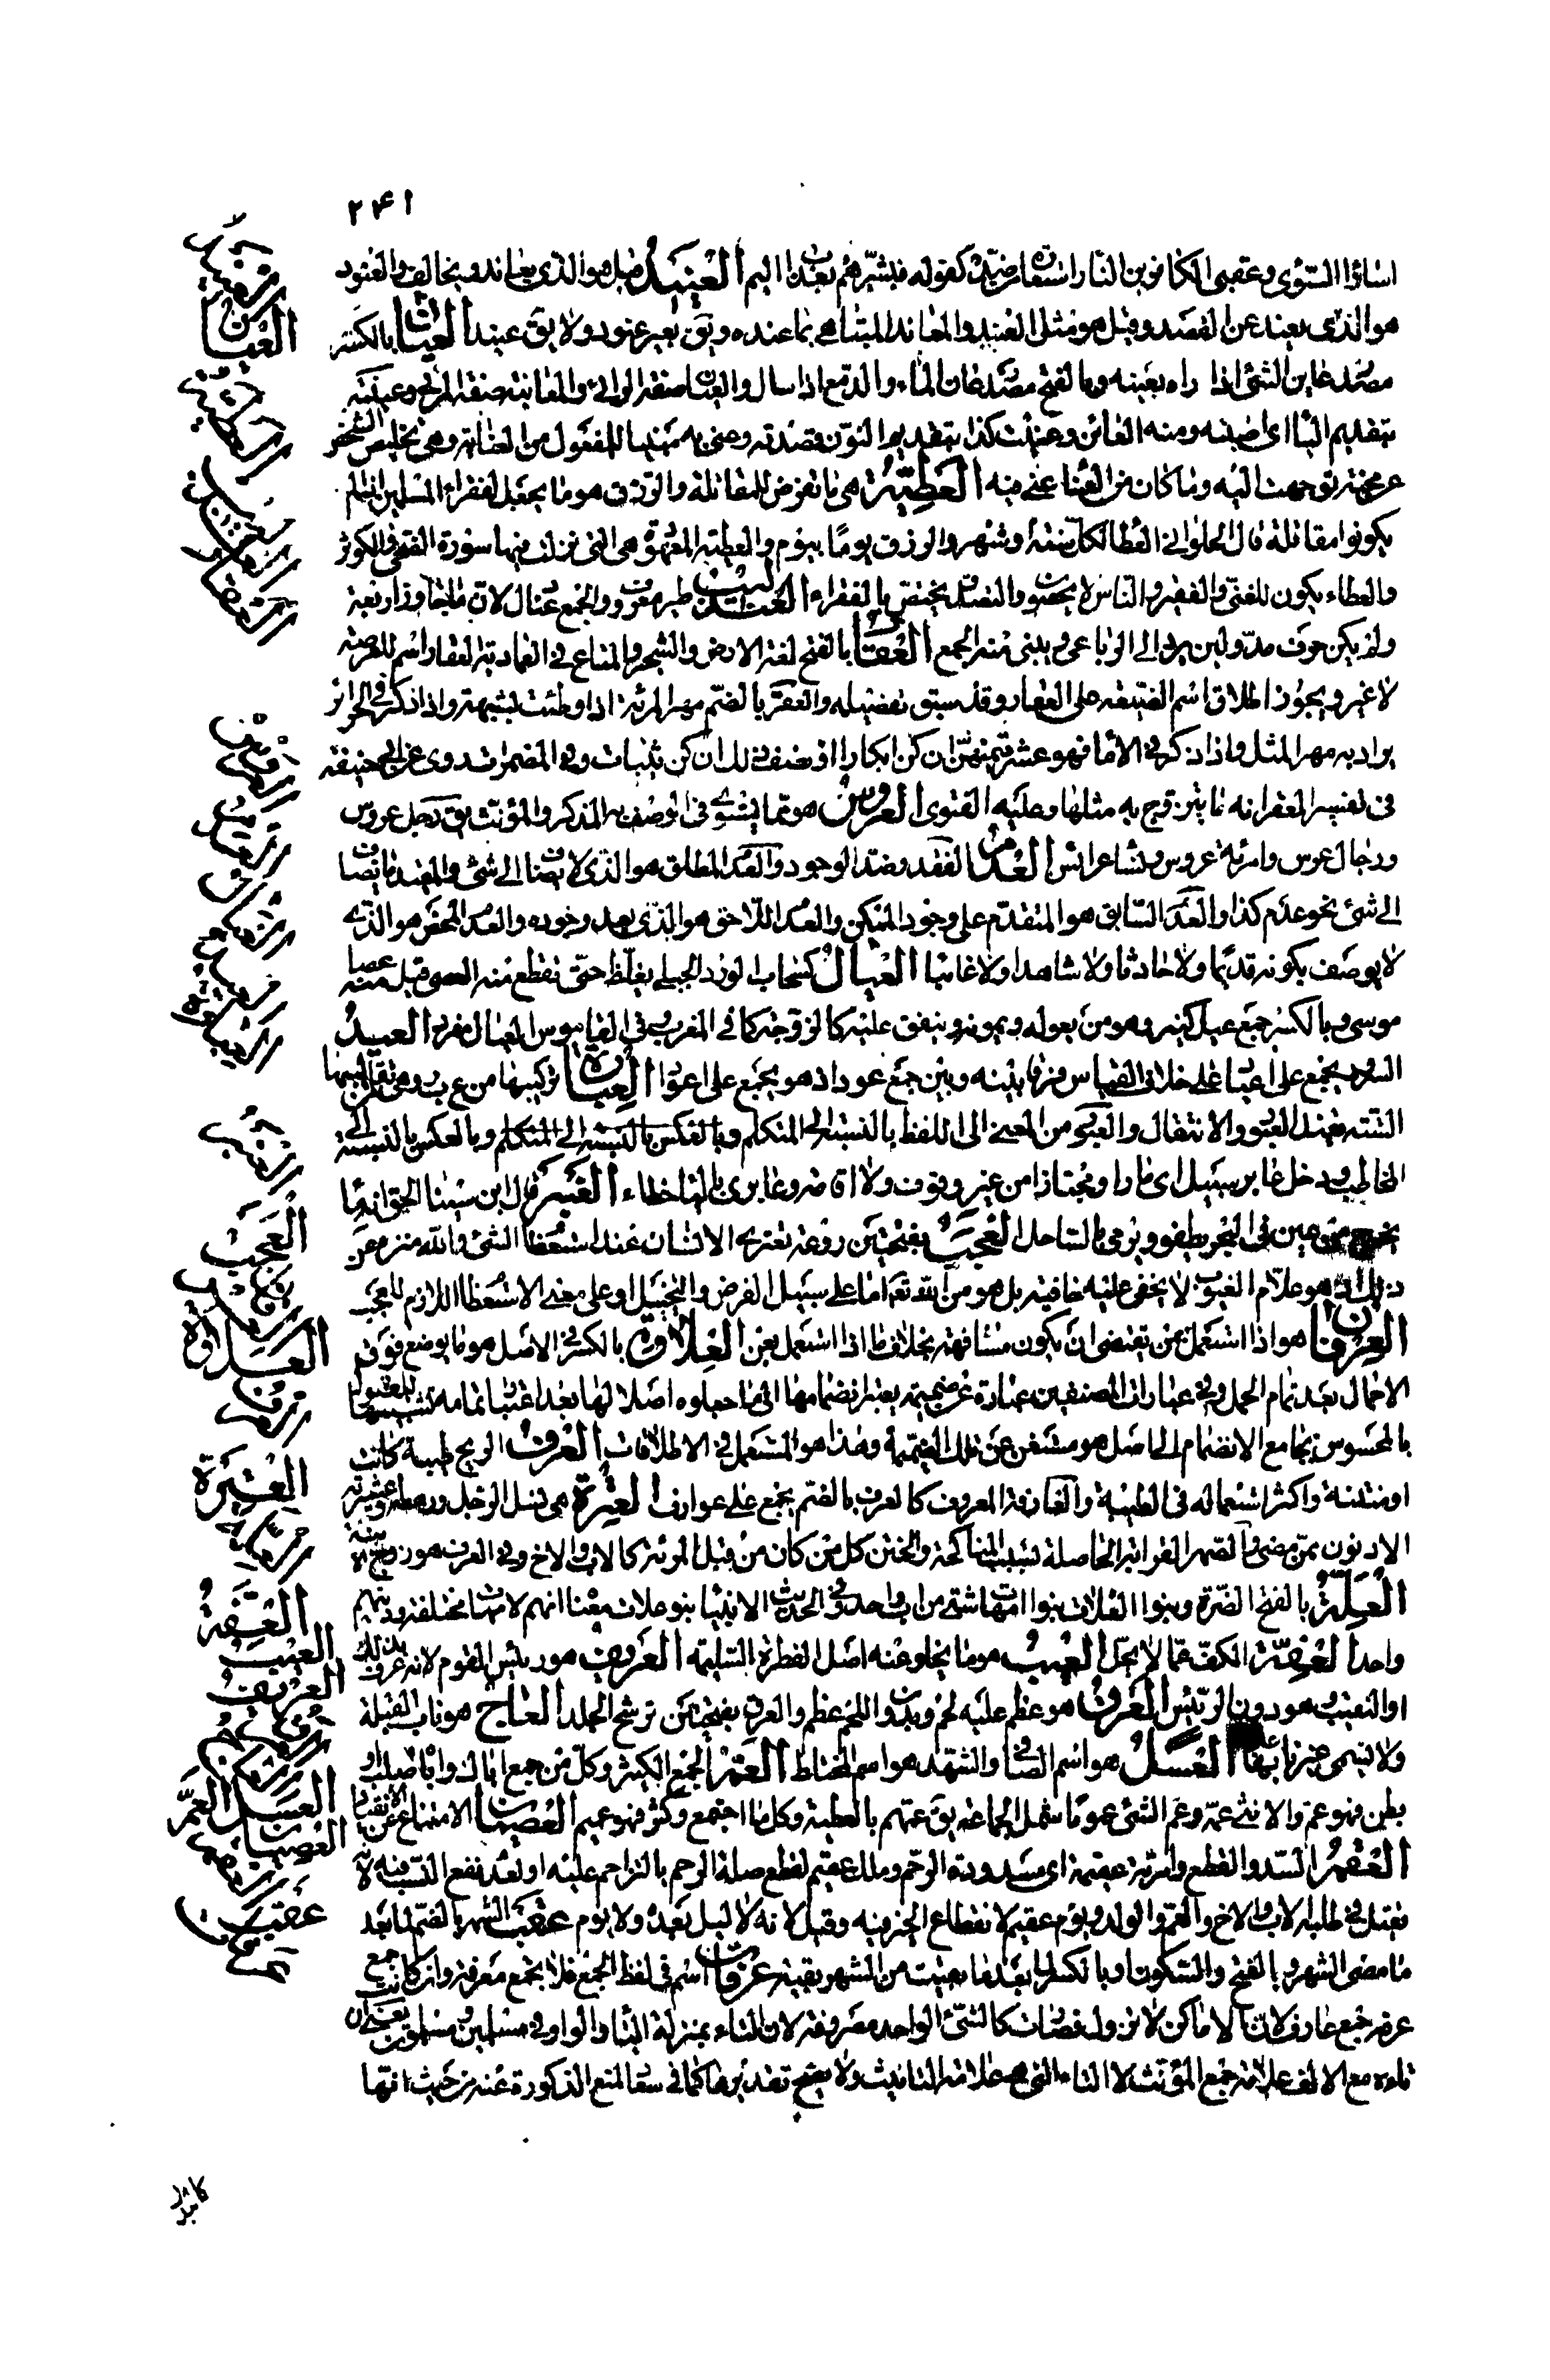 ٢٤١
اساؤا السوٓى وعقبى الكافرين النار استعارة ضدية كقوله فبشرهم بعذاب اليم العنيد قيل هو الذي يعاند ويخالف والعنود
هو الذي يعند عن القصد وقيل هو مثل العنيد والمعاند المتباهى بما عنده ويق بعير عنود ولا يق عنيد العيان بالكسر
مصدر عاين الشئ اذا راه بعينه وبالفتح مصدر عان الماء والدمع اذا سال والعيان صفة الرائى والمعاينة صفة المرئى وعينته
بتقديم الياء اى ومنه العاين وعنيت كذا بتقديم النون قصدته وعنى به مبنيا للمفعول من العناية وهى تخليص الشخص
عن محنة توجهت اليه وما كان من العنا عنى منه العطية هى ما تفرض للمقاتلة والرزق هو ما يجعل لفقراء المسلمين اذا لم
يكونوا مقاتلة قال الحلوانى العطا لكل سنة او شهر والرزق يوما بيوم والعطية هى التى نزلت فيها سورة الضحى والكوثر
والعطاء يكون للغنى والفقير والناس والتصدق يختص بالفقراء العندليب طير معروف والجمع عنادل لان ما جاوز اربعة
ولم يكن حرف مد ولين يرد الى الرباعى ويبنى منه الجمع العقار بالفتح لغة الارض والشجر والمتاع وفى العمادية العقار اسم للعرصة
لا غير ويجوز اطلاق اسم الضيعة على العقار وقد سبق تفصيله والعقر بالضم مهر المرئة اذا وطئت بشبهة واذا ذكر فى الحرائر
يراد به مهر المثل واذا ذكر فى الاماء فهو عشر قيمتهن ان كن ابكارا او نصف ذلك ان كن ثيبات وفى المضمرات روى عن ابى حنيفة
فى تفسير العقر انه ما يتزوج به مثلها وعليه الفتوى العروس هو مما يستوى فى الوصف به المذكر والمؤنث يق رجل عروس
ورجال عرس وامرئة عروس ونساء عرائس العدم الفقد وضد الوجود والعدم المطلق هو الذي لا يضاف الى شئ والمقيد ما يضاف
الى شئ نحو عدم كذا والعدم السابق هو المتقدم على وجود الممكن والعدم اللاحق هو الذي بعد وجوده والعدم المحض هو الذي
لا يوصف بكونه قديما ولا حادثا ولا شاهدا ولا غائبا العبال كسحاب الورد الجبلى يغلظ حتى تقطع منه العصى قيل منه عصا
موسى وبالكسر جمع عيل ككيس وهو من يعوله ويمونه وينفق عليه كالزوجة كما فى المغرب وفى القاموس العيال مفرد العيد
السرور يجمع على اعياد على خلاف القياس فرقا بينه وبين جمع عود اذ هو يجمع على اعواد العبارة تركيبها من ع ب ر وهى فى تقاليبها
الستة تفيد العبور والانتقال والعبور من المعنى الى اللفظ بالنسبة الى المتكلم وبالعكس بالنسبة الى المتكلم وبالعكس بالنسبة الى
المخاطب ودخل عابر سبيل اى مارا ومجتازا من غير وقوف ولا اقامة وعابرى بالتاء خطاء العنبر قال ابن سينا الحق انه ما
يخرج من عين فى البحر يطفو ويرمى بالساحل العجب بفتحتين روعة تعترى الانسان عند استعظام الشئ والله منزه عن
ذلك اذ هو علام الغيوب لا يخفى عليه خافية بل هو من الله تعالى اما على سبيل الفرض والتخييل او على معنى الاستعظام اللازم للعجب
العرفان هو اذا استعمل بمن يقتضى ان يكون مشافهة بخلاف ما اذا استعمل بعن العلاوة بالكسر فى الاصل هو ما يوضع فوق
الاحمال بعد تمام الحمل وفى عبارات المصنفين عبارة عن ضميمة يعتبر انضمامها الى ما جعلوه اصلا لها بعد اعتبار تمامه تشبيها للمعقول
بالمحسوس بجامع الانضمام الى الحاصل هو مستغن عن تلك الضميمة وهذا هو المستعمل فى الاطلاقات العرف الريح طيبة كانت
او منتنة واكثر استعماله فى الطيبة والعارفة المعروف كالعرف بالضم يجمع على عوارف العترة هى نسل الرجل ورهطه وعشيرته
الادنون ممن مضى والصهر القرابة الحاصلة بسبب المناكحة والختن كل من كان من قبل المرئة كالاب والاخ وفى العرف هو زوج الابنة
العلة بالفتح الضرة وبنوا العلات بنوا امهات شتى من اب واحد وفى الحديث الانبياء بنو علات معناه انهم لامهات مختلفة ودينهم
واحد العفة الكف عما لا يحل العيب هو ما يخلو عنه اصل الفطرة السليمة العريف هو رئيس القوم لانه عرف بذلك
او النقيب هو دون الرئيس العرق هو عظم عليه لحم وبدون اللحم عظم والعرق بفتحتين ترشح الجلد العاج هو ناب الفيلة
ولا يسمى غير نابها العسل هو اسم الصافى والشهد هو اسم المختلط العم الجمع الكثير وكل من جمع اباك واباه صلب او
بطن فهو عم والانثى عمة وعم الشئ عموما شمل الجماعة يق عمهم بالعطية وكل ما اجتمع وكثر فهو عميم العصيان الامتناع عن الانقياد
العقم السد والقطع وامرئة عقيمة اى مسدودة الرحم وملك عقيم لقطع صلة الرحم بالتزاحم عليه او لعدم نفع النسب فيه لانه
يقتل فى طلبه الاب والاخ والعم والولد ويوم عقيم لانقطاع الخير فيه وقيل لانه لا ليل بعده ولا يوم عقب الشهر بالضم لما بعد
ما مضى الشهر وبالفتح والسكون او بالكسر لما بعدها بقيت من الشهر بقية عرفات اسم فى لفظ الجمع فلا يجمع معرفة وان كانت جمع
عرفة جمع عارف لان الاماكن لا تزول فصارت كالشئ الواحد مصروفة لان التاء بمنزلة الياء والواو فى مسلمين ومسلمون يعنى ان
تاءه مع الالف علامة جمع المؤنث لا التاء التى هى علامة التانيث ولا يصح تقديرها كما فى سعاد لمنع المذكورة عنه من حيث انها
العيان
العجب
العلاوة
العترة
العفة
العيب
العريف
العسل
العم
العصيان
عقب